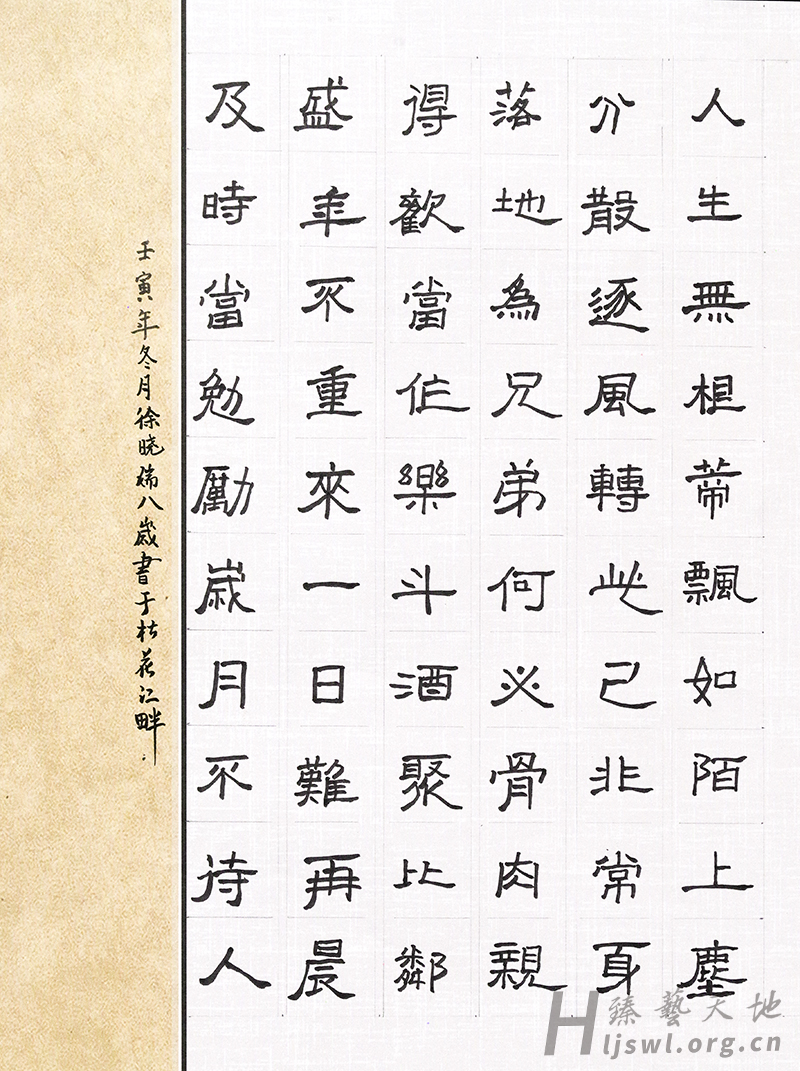 人生無根蒂飄如陌上塵
分散逐風轉此已非常身
落地為兄弟何必骨肉親
得歡當作樂斗酒聚比鄰
盛年不重來一日難再晨
及時當勉勵歲月不待人
壬寅年冬月徐晓瑞八歲書于松花江畔
臻藝天地
Hljswl.org.cn